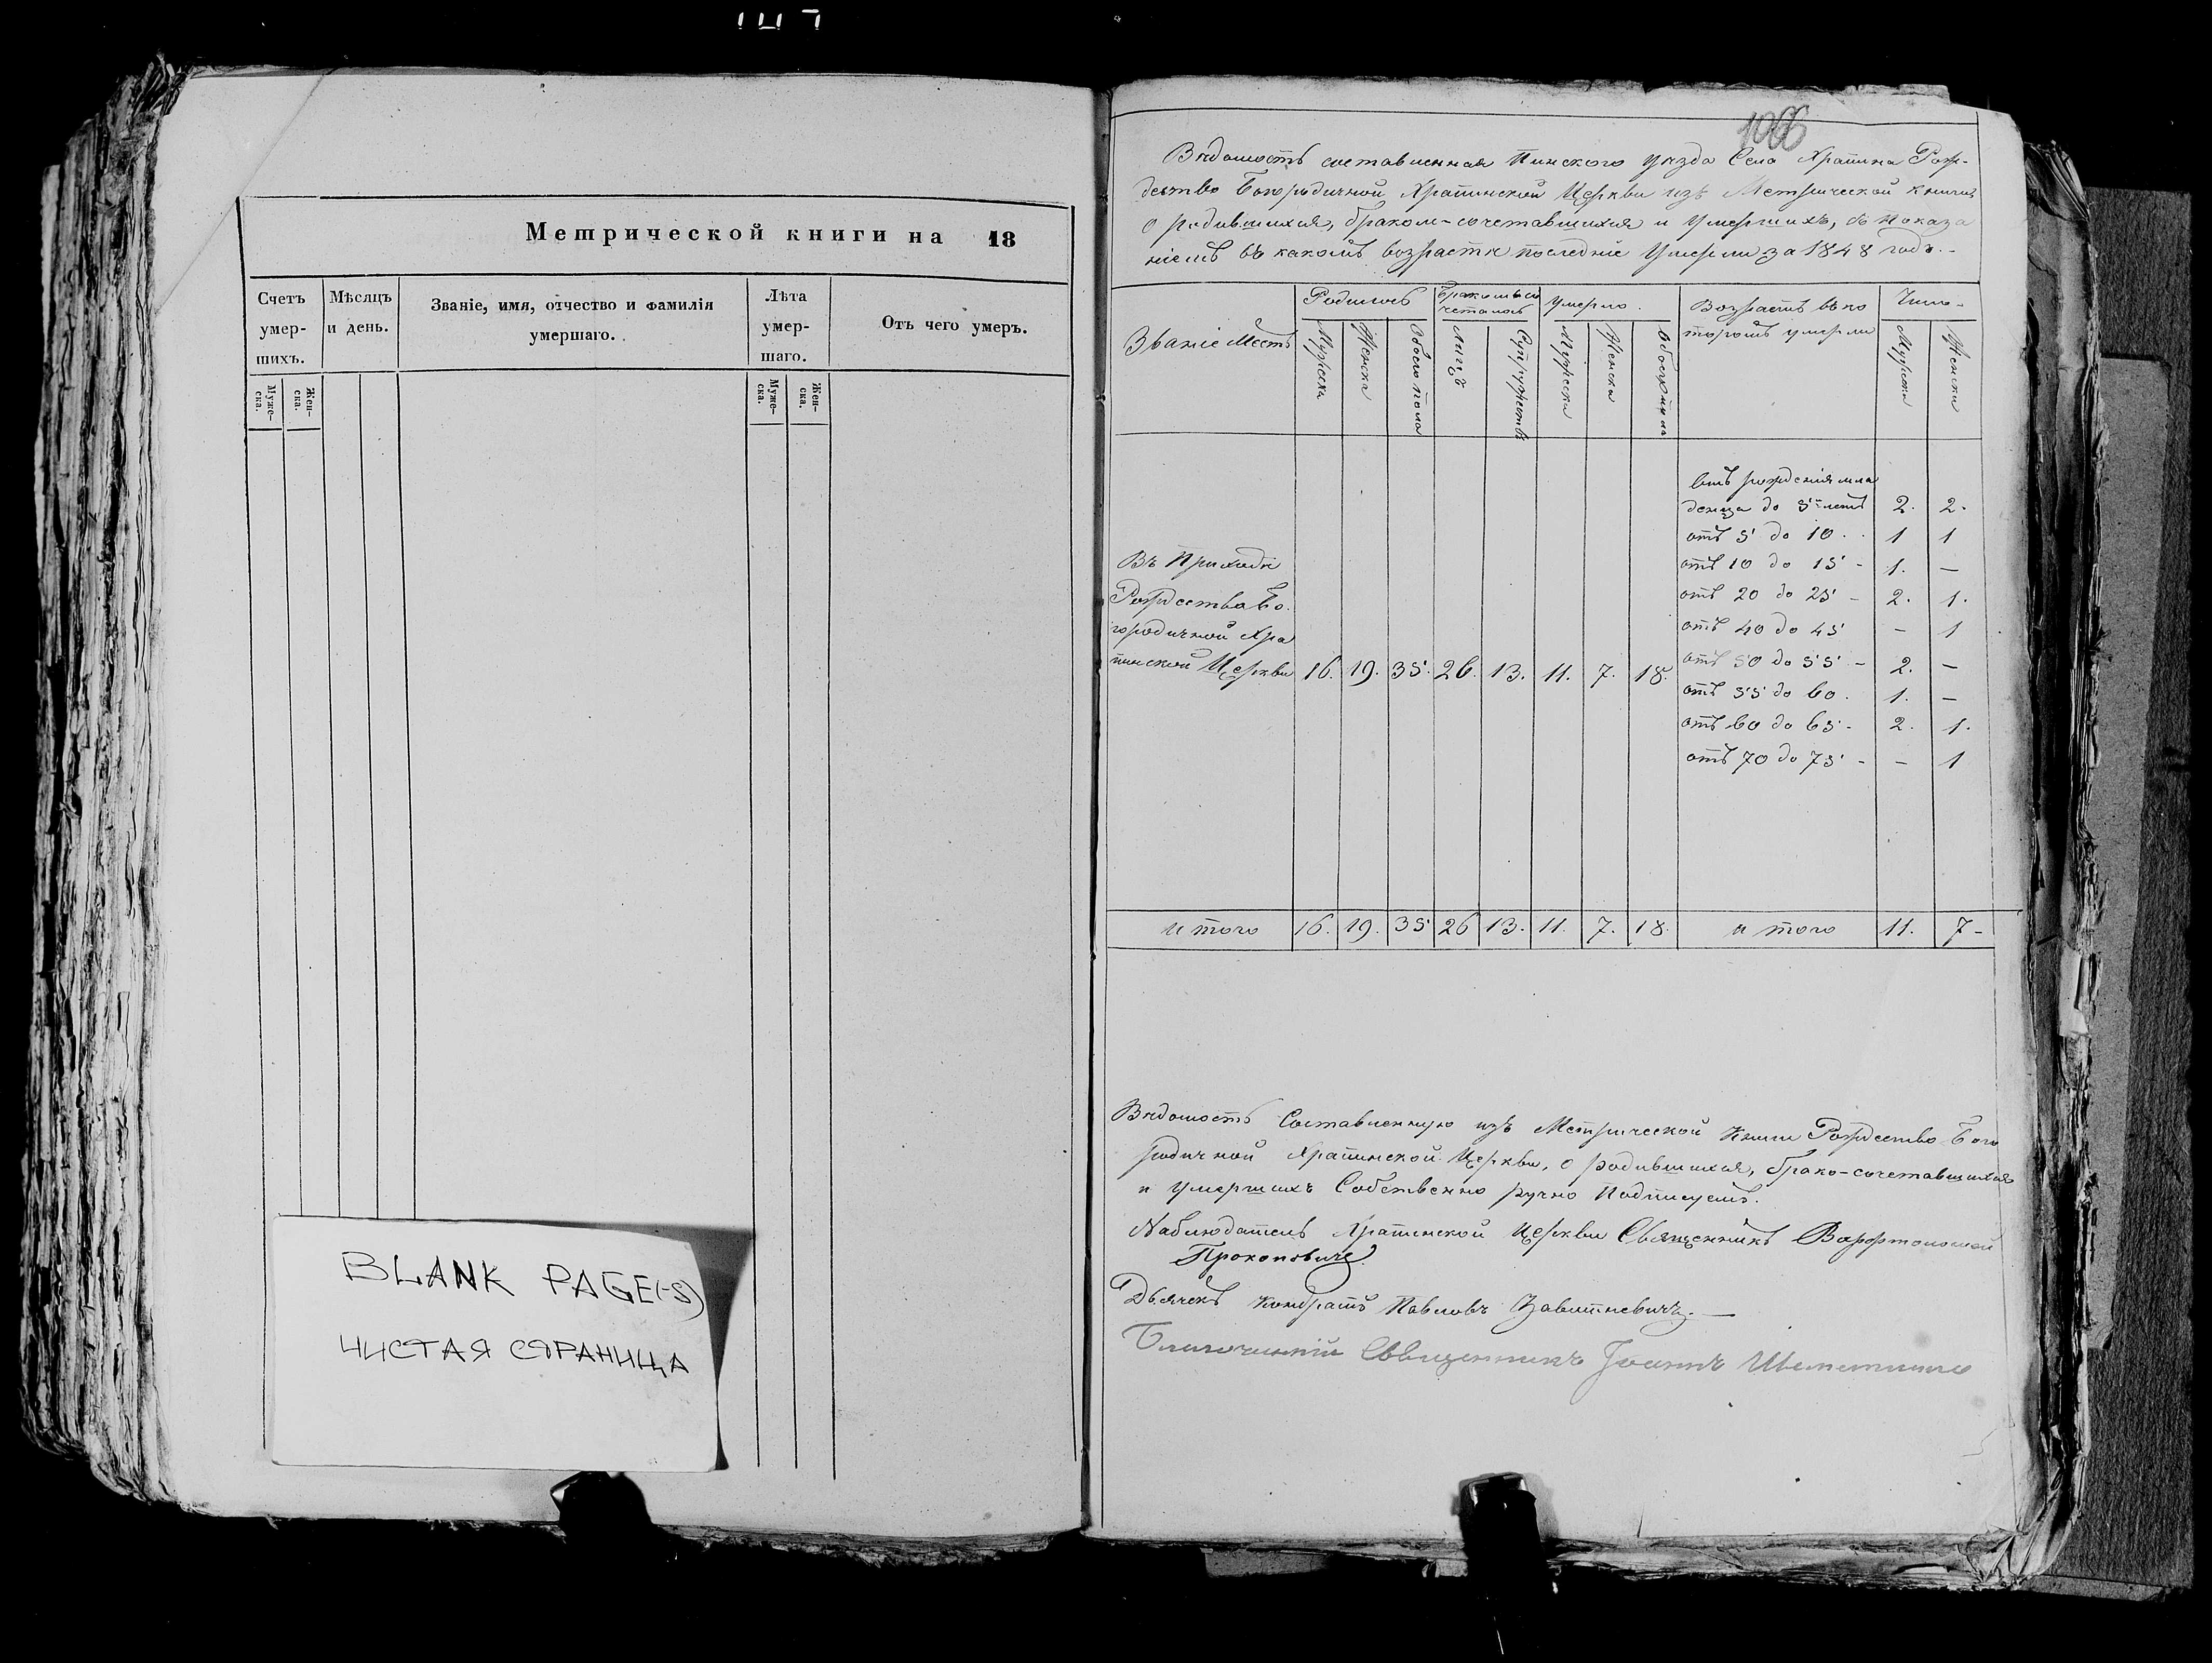 Метрической книги на 18
Счетъ умер-шихъ.
Мѣсяцъ и день.
Званіе, имя, отчество и фамилія умершаго.
Лѣта умер-шаго.
Отъ чего умеръ.
Муже-ска.
Жен-ска.
Муже-ска.
Жен-ска.
BLANK PAGE(-S)
ЧИСТАЯ СТРАНИЦА
1066
Вѣдомость составленная Пинскаго уѣзда Села Храпина Рож-
дество Богородичной Храпинской Церкви изъ Метрической книги
о родившихся, браком-сочетавшихся и Умершихъ, съ показа
ніемъ въ какомъ возрастѣ последніе Умерли за 1848 годъ.
Званіе Местъ
Родилось
Бракомъ со четалось
Умерло
Возрастъ въ ко торомъ умерли
Число
Мужска
Женска
Обоего пола
Лицъ
Супружествъ
Мужеска
Женска
Мужеска
Женска
отъ рожденія мла
денца до 5 летъ 2. 2.
отъ 5 до 10 . . 1 1
отъ 10 до 15 - 1. —
отъ 20 до 25 - 2. 1.
отъ 40 до 45 — 1
отъ 50 до 55 - 2. —
отъ 55 до 60 . 1. —
отъ 60 до 65 - 2. 1.
отъ 70 до 75 - - 1
Въ Приходѣ
Рождества Бо.
городичной Хра
пинской Церкви 16. 19. 35. 26. 13. 11. 7. 18.
итого 16. 19. 35 26 13. 11. 7. 18. итого 11. 7-
Вѣдомость Составленную изъ Метрической Книги Рождество Бого
родичной Храпинской Церкви, о родившихся, брако-сочетавшихся
и Умершихъ Собственно ручно Подписуемъ.
Наблюдатель Храпинской Церкви Священникъ Варфоломей
Прокоповичъ
Дьячекъ Кондратъ Павловъ Завитневичъ.
Благочинній Священникъ Іоаннъ